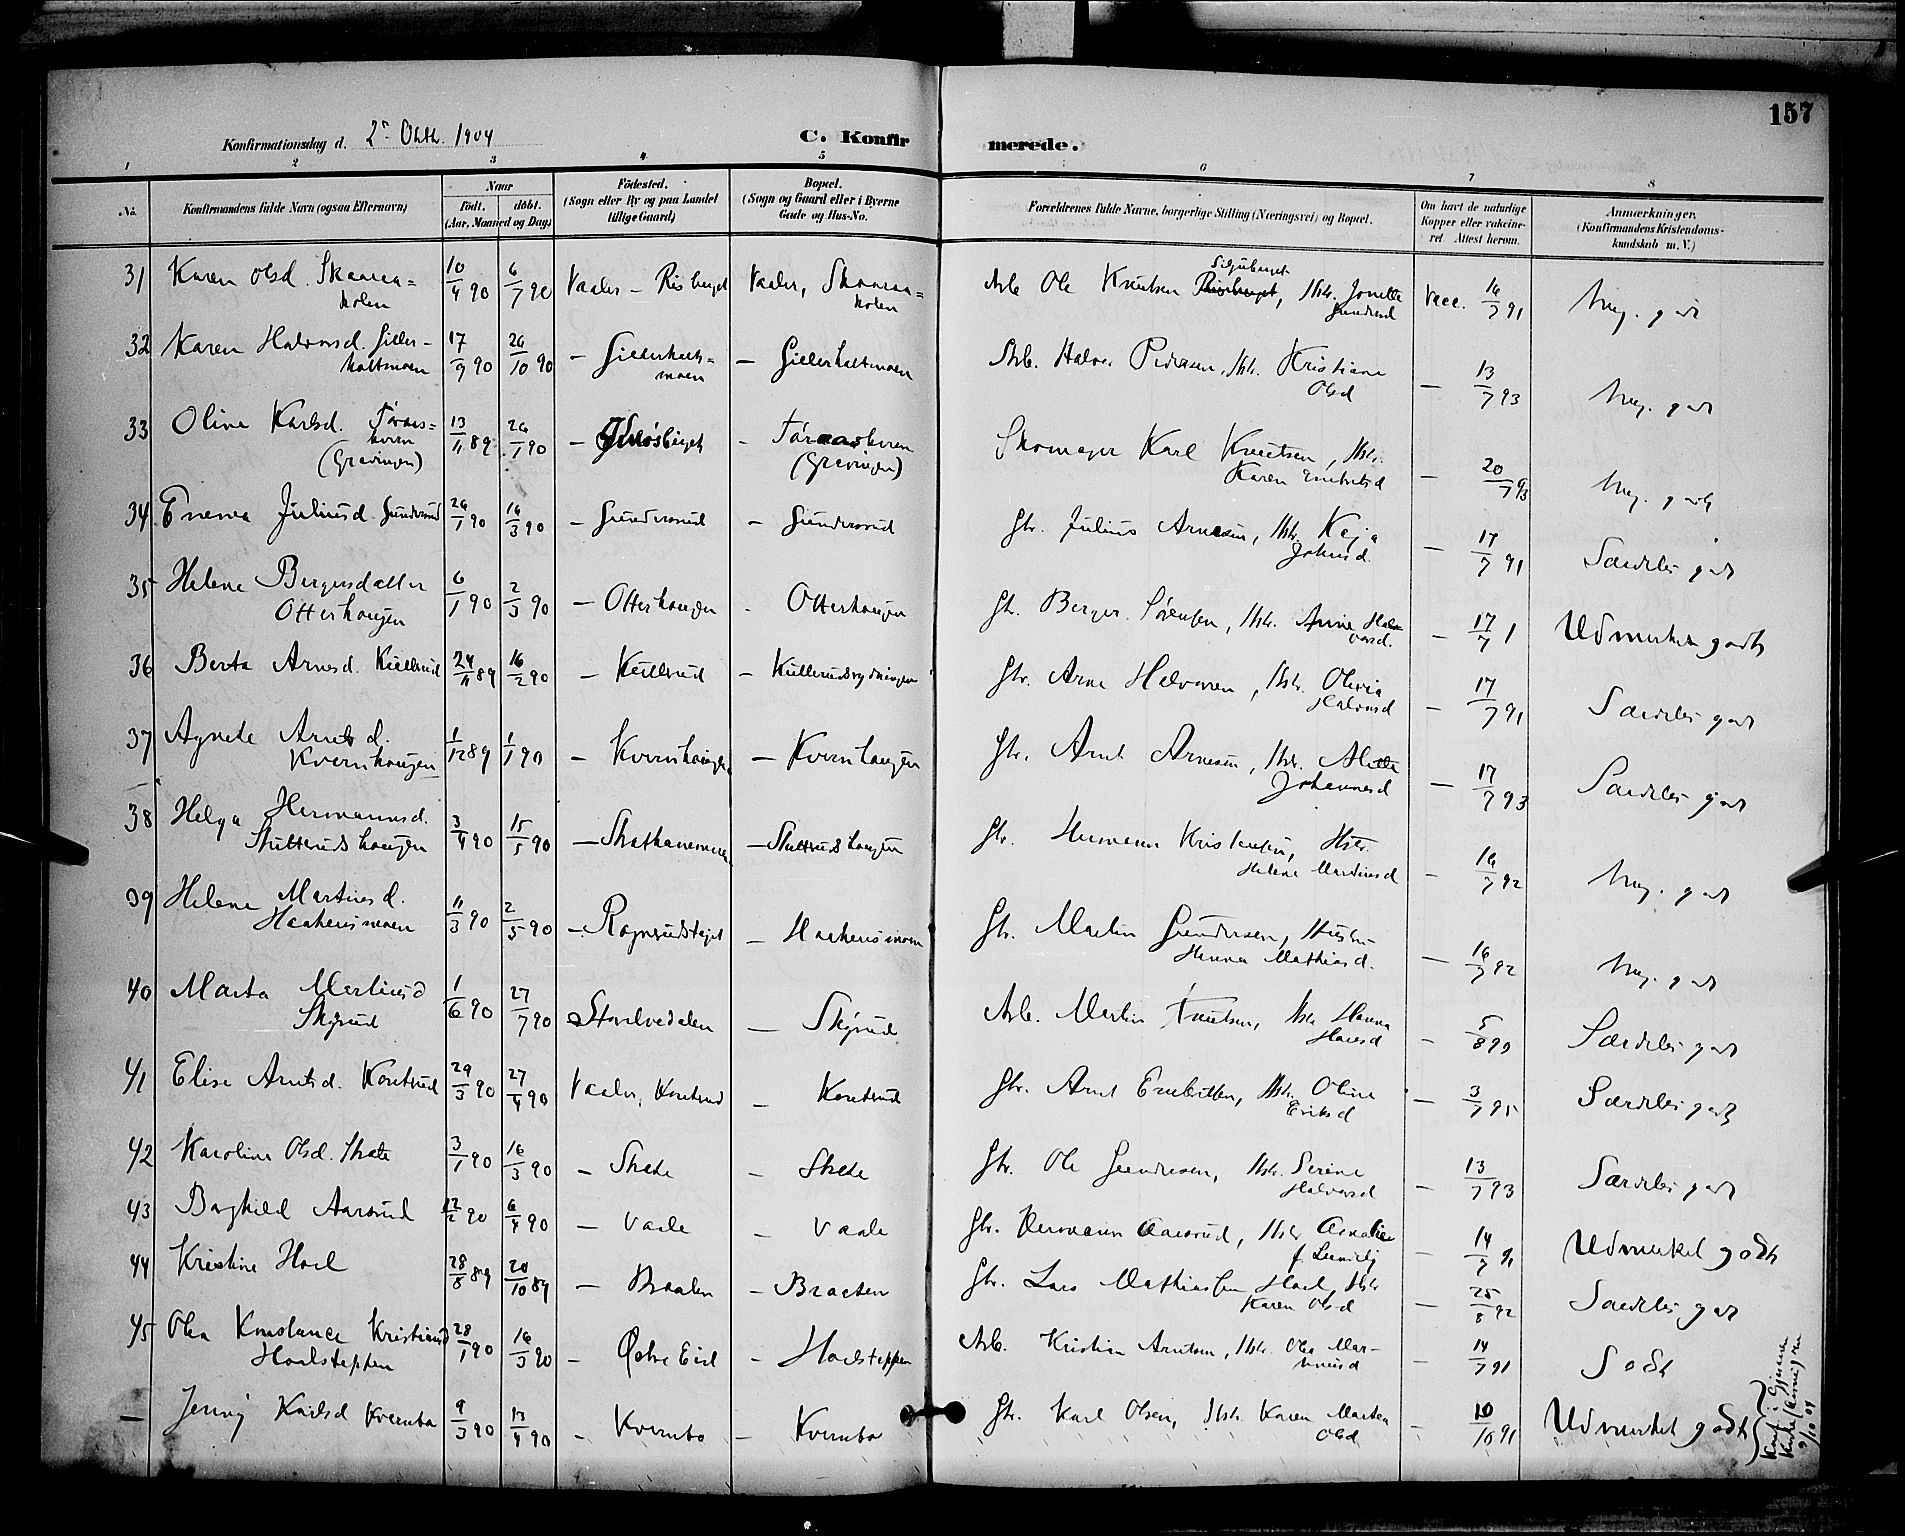 157
Konfirmationsdag d. 2 Oktb. 1904
C. Konfirmerede.
1 2 3 4 5 6 7 8
No.
Konfirmandens fulde Navn (ogsaa Efternavn)
Naar
födt. döbt.
(Aar, Maaned og Dag)
Födested.
(Sogn eller By og paa Landet
tillige Gaard)
Bopæl.
(Sogn og Gaard eller i Byerne
Gade og Hus-No.
Forældrenes fulde Navne, borgerlige Stilling (Næringsvei) og Bopæl.
Om havt de naturlige
Kopper eller vakcine-
ret Attest herom.
Anmærkninger.
(Konfirmandens Kristendoms-
kundskab m. V.)
31 Karen Olsd. Skaaraa=
holen 10/4 90 6/7 90 Vaaler – Risberget Vaaler, Skaaraa=
holen Arb. Ole Knutsen Siljuberget, Hstr. Jonette
Gundersd Vacc. 16/7 91 Meg. godt
32 Karen Halvorsd. Giller-
holtmoen 17/9 90 26/10 90 – Gillerholt=
moen – Gillerholtmoen Arb. Halvor Pedersen, Hstr. Kristiane
Olsd – 13/7 93 Meg. godt
33 Oline Karlsd.Føraas=
kvern
(Grævingen) 13/11 89 26/1 90 – – Føraaskvern
(Grævingen) Skomager Karl Knutsen, Hstr.
Karen Embretsd – 20/7 93 Meg. godt
34 Emma Juliusd. Gundersrud 26/1 90 16/3 90 – Gundersrud – Gundersrud Gbr. Julius Arnesen, Hstr. Kaja
Johnsd. – 17/7 91 Særdeles godt
35 Helene Bergersdatter
Otterhaugen 6/1 90 2/3 90 – Otterhaugen - Otterhaugen Gbr. Berger Sørensen, Hstr. Anne Hal-
vorsd. – 17/7 1 Udmerket godt
36 Berta Arnesd. Kullerud 24/11 89 16/2 90 – Kullerud – Kullerudrydningen Gbr. Arne Halvorsen, Hstr. Olivia
Halvorsd – 17/7 91 Særdeles godt
37 Agnete Arntsd.
Kvernhaugen 1/12 89 1/1 90 – Kvernhaugen – Kvernhaugen Gbr. Arnt Arnesen, Hstr. Alette
Johannesd – 17/7 93 Særdeles godt
38 Helga Hermannsd.
Stutterudshaugen 3/4 90 15/5 90 – – Stutterudshaugen Gbr. Hermann Kristensen, Hstr.
Helene Martinsd – 16/7 92 Meg. godt
39 Helene Martinsd.
Haakensmoen 11/3 90 2/5 90 – – Haakensmoen Gbr. Martin Gundersen, Hustru
Hanna Mathiasd. – 16/7 92 Meg. godt
40 Marta Martinsd
Skjrud 1/6 90 27/7 90 – – Skjrud Arb. Martin Knutsen, Hstr Hanna
Hansd – 5/8 99 Særdeles godt
41 Elise Arntsd. Kontrud 29/3 90 27/4 90 Vaaler, Kontrud – Kontrud Gbr. Arnt Embretsen, Hstr. Oline
Eriksd – 3/7 95 Særdeles godt
42 Karoline Olsd. Skate 3/1 90 16/3 90 – Skate – Skate Gbr. Ole Gundersen, Hstr. Serine
Halvorsd – 13/7 93 Særdeles godt
43 Borghild Aarsrud 12/2 90 6/4 90 – Vaale – Vaale Gbr. Hermann Aarsrud, Hstr
f. Lundby – 14/7 91 Udmerket godt
44 Kristine Hoel 28/8 89 20/10 89 – Braaten – Braaten Gbr. Lars Mathiassen Hoel, Hstr
Karen Olsd – 25/8 92 Særdeles godt
45 Olea Konstance Kristiansd
Hoelsteppen 28/1 90 16/3 90 – Østre Eid – Hoelsteppen Arb. Kristian Arntsen, Hstr. Olea Mar-
tinusd – 14/7 91 Godt
— Jenny Karlsd Kvernbo 9/3 90 13/4 90 – Kvernbo – Kvernbo Gbr. Karl Olsen, Hstr. Karen Martea
Olsd – 10/10 91 Udmerket godt
Konf. i
9/10 04